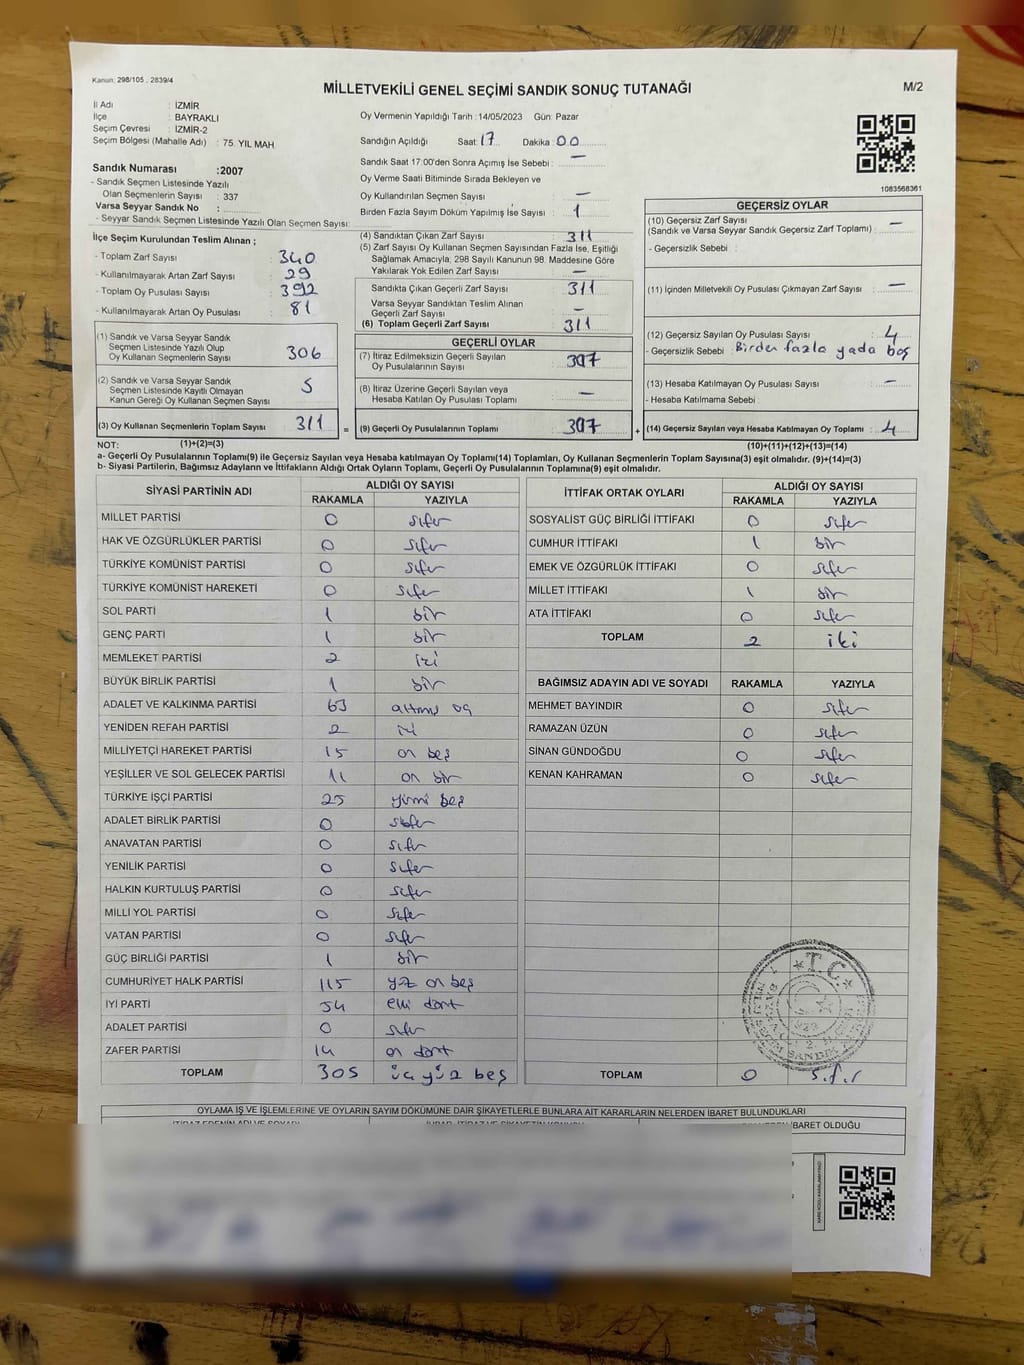 Kanun: 298/105 , 2839/4
MİLLETVEKİLİ GENEL SEÇİMİ SANDIK SONUÇ TUTANAĞI
M/2
İl Adı : İZMİR
İlçe : BAYRAKLI
Seçim Çevresi : İZMİR-2
Seçim Bölgesi (Mahalle Adı) : 75. YIL MAH.
Oy Vermenin Yapıldığı Tarih :14/05/2023 Gün: Pazar
Sandığın Açıldığı Saat: 17 Dakika 00
Sandık Saat 17:00'den Sonra Açımış İse Sebebi : —
Oy Verme Saati Bitiminde Sırada Bekleyen ve
Oy Kullandırılan Seçmen Sayısı —
Birden Fazla Sayım Döküm Yapılmış İse Sayısı : 1
Sandık Numarası :2007
- Sandık Seçmen Listesinde Yazılı
Olan Seçmenlerin Sayısı : 337
Varsa Seyyar Sandık No :
- Seyyar Sandık Seçmen Listesinde Yazılı Olan Seçmen Sayısı:
1083568361
İlçe Seçim Kurulundan Teslim Alınan ;
- Toplam Zarf Sayısı : 340
- Kullanılmayarak Artan Zarf Sayısı : 29
- Toplam Oy Pusulası Sayısı : 392
- Kullanılmayarak Artan Oy Pusulası : 81
(1) Sandık ve Varsa Seyyar Sandık
Seçmen Listesinde Yazılı Olup
Oy Kullanan Seçmenlerin Sayısı 306
(2) Sandık ve Varsa Seyyar Sandık
Seçmen Listesinde Kayıtlı Olmayan
Kanun Gereği Oy Kullanan Seçmen Sayısı 5
(3) Oy Kullanan Seçmenlerin Toplam Sayısı 311 =
(4) Sandıktan Çıkan Zarf Sayısı : 311
(5) Zarf Sayısı Oy Kullanan Seçmen Sayısından Fazla İse, Eşitliği
Sağlamak Amacıyla; 298 Sayılı Kanunun 98. Maddesine Göre
Yakılarak Yok Edilen Zarf Sayısı : —
Sandıkta Çıkan Geçerli Zarf Sayısı : 311
Varsa Seyyar Sandıktan Teslim Alınan
Geçerli Zarf Sayısı : —
(6) Toplam Geçerli Zarf Sayısı : 311
GEÇERLİ OYLAR
(7) İtiraz Edilmeksizin Geçerli Sayılan
Oy Pusulalarının Sayısı : 307
(8) İtiraz Üzerine Geçerli Sayılan veya
Hesaba Katılan Oy Pusulası Toplamı : —
(9) Geçerli Oy Pusulalarının Toplamı : 307 +
GEÇERSİZ OYLAR
(10) Geçersiz Zarf Sayısı
(Sandık ve Varsa Seyyar Sandık Geçersiz Zarf Toplamı) : —
- Geçersizlik Sebebi :
(11) İçinden Milletvekili Oy Pusulası Çıkmayan Zarf Sayısı : —
(12) Geçersiz Sayılan Oy Pusulası Sayısı : 4
- Geçersizlik Sebebi : Birden fazla yada boş
(13) Hesaba Katılmayan Oy Pusulası Sayısı : —
- Hesaba Katılmama Sebebi :
(14) Geçersiz Sayılan veya Hesaba Katılmayan Oy Toplamı : 4
NOT: (1)+(2)=(3) (10)+(11)+(12)+(13)=(14)
a- Geçerli Oy Pusulalarının Toplamı(9) ile Geçersiz Sayılan veya Hesaba katılmayan Oy Toplamı(14) Toplamları, Oy Kullanan Seçmenlerin Toplam Sayısına(3) eşit olmalıdır. (9)+(14)=(3)
b- Siyasi Partilerin, Bağımsız Adayların ve İttifakların Aldığı Ortak Oyların Toplamı, Geçerli Oy Pusulalarının Toplamına(9) eşit olmalıdır.
SİYASİ PARTİNİN ADI ALDIĞI OY SAYISI
RAKAMLA YAZIYLA
MİLLET PARTİSİ 0 sıfır
HAK VE ÖZGÜRLÜKLER PARTİSİ 0 sıfır
TÜRKİYE KOMÜNİST PARTİSİ 0 sıfır
TÜRKİYE KOMÜNİST HAREKETİ 0 sıfır
SOL PARTİ 1 bir
GENÇ PARTİ 1 bir
MEMLEKET PARTİSİ 2 iki
BÜYÜK BİRLİK PARTİSİ 1 bir
ADALET VE KALKINMA PARTİSİ 63 altmış üç
YENİDEN REFAH PARTİSİ 2 iki
MİLLİYETÇİ HAREKET PARTİSİ 15 on beş
YEŞİLLER VE SOL GELECEK PARTİSİ 11 on bir
TÜRKİYE İŞÇİ PARTİSİ 25 yirmi beş
ADALET BİRLİK PARTİSİ 0 sıfır
ANAVATAN PARTİSİ 0 sıfır
YENİLİK PARTİSİ 0 sıfır
HALKIN KURTULUŞ PARTİSİ 0 sıfır
MİLLİ YOL PARTİSİ 0 sıfır
VATAN PARTİSİ 0 sıfır
GÜÇ BİRLİĞİ PARTİSİ 1 bir
CUMHURİYET HALK PARTİSİ 115 yüz on beş
İYİ PARTİ 54 elli dört
ADALET PARTİSİ 0 sıfır
ZAFER PARTİSİ 14 on dört
TOPLAM 305 üç yüz beş
İTTİFAK ORTAK OYLARI ALDIĞI OY SAYISI
RAKAMLA YAZIYLA
SOSYALİST GÜÇ BİRLİĞİ İTTİFAKI 0 sıfır
CUMHUR İTTİFAKI 1 bir
EMEK VE ÖZGÜRLÜK İTTİFAKI 0 sıfır
MİLLET İTTİFAKI 1 bir
ATA İTTİFAKI 0 sıfır
TOPLAM 2 iki
BAĞIMSIZ ADAYIN ADI VE SOYADI RAKAMLA YAZIYLA
MEHMET BAYINDIR 0 sıfır
RAMAZAN ÜZÜN 0 sıfır
SİNAN GÜNDOĞDU 0 sıfır
KENAN KAHRAMAN 0 sıfır
T.C.
TOPLAM 0 sıfır
OYLAMA İŞ VE İŞLEMLERİNE VE OYLARIN SAYIM DÖKÜMÜNE DAİR ŞİKAYETLERLE BUNLARA AİT KARARLARIN NELERDEN İBARET BULUNDUKLARI
İBARET OLDUĞU